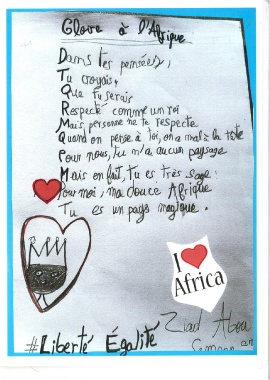 Gloire à l'Afrique
Dans tes pensées,
Tu croyais,
Que tu serais
Respecté comme un roi
Mais personne ne te respecte
Quand on pense à toi, on a mal à la tête
Pour nous, tu n'a aucun paysage
Mais en fait, tu es très sage!
Pour moi, ma douce Afrique
Tu es un pays magique.
I
Africa
Ziad
#Liberté Égalité